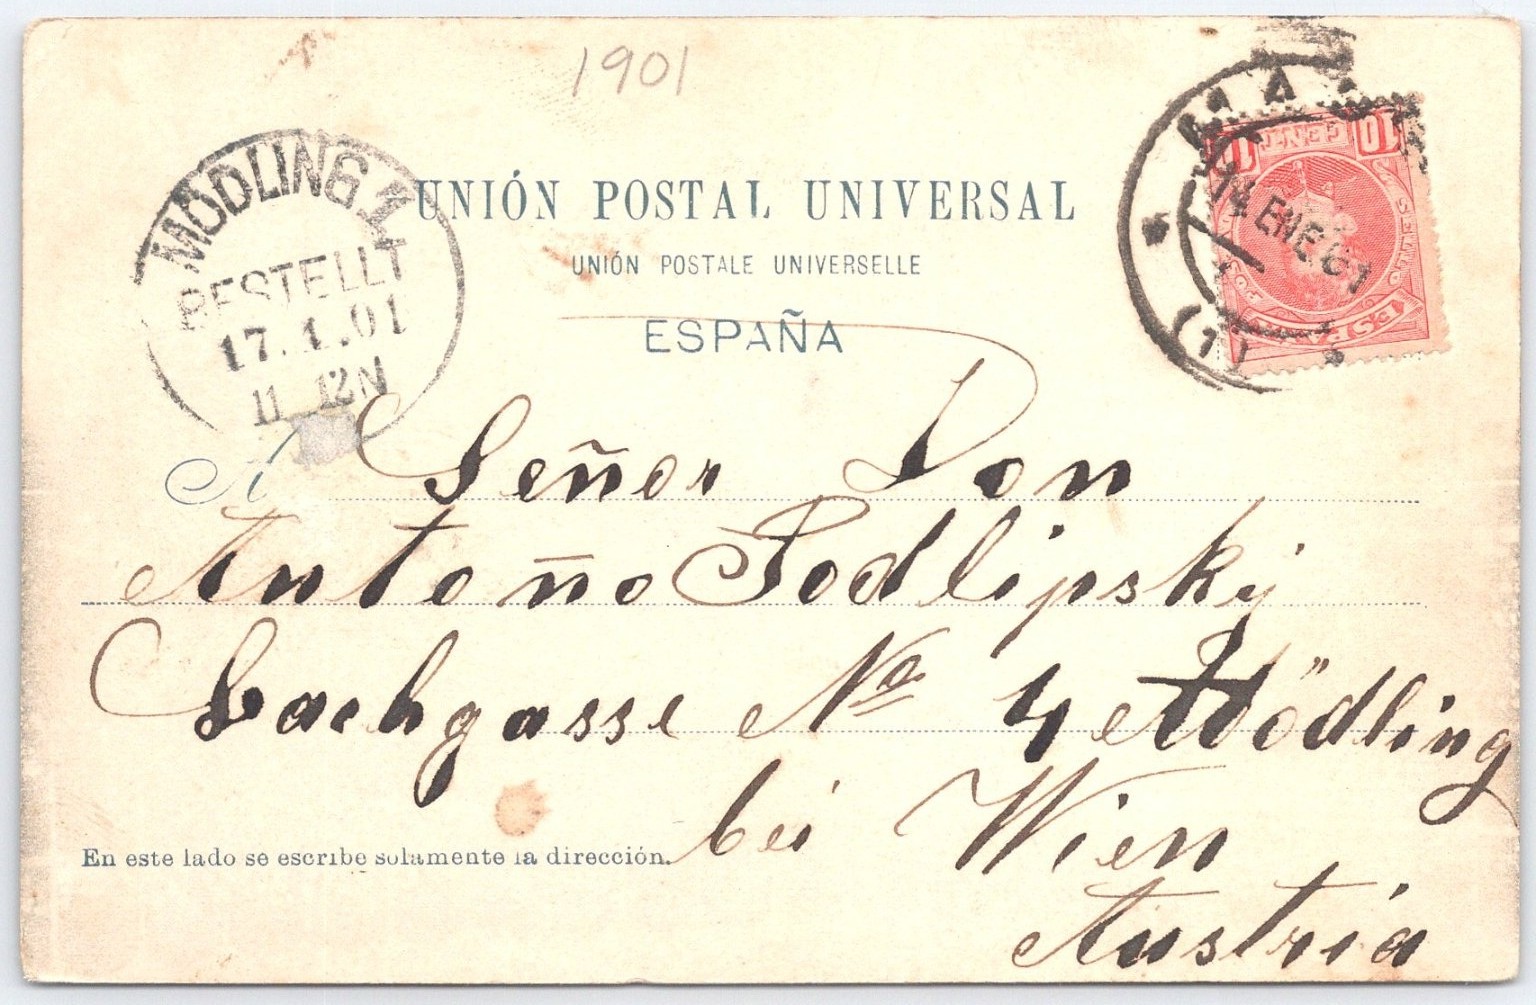 1901
MÖDLING 1
BESTELLT
17.1.01
11 12N
UNIÓN POSTAL UNIVERSAL
UNIÓN POSTALE UNIVERSELLE
ESPAÑA
14 ENE 01
(1)
10 CENTS 10
A Señor Don
Antoño Podlipský
Bachgasse Nº 4 Mödling
bei Wien
Austria
En este lado se escribe solamente la dirección.